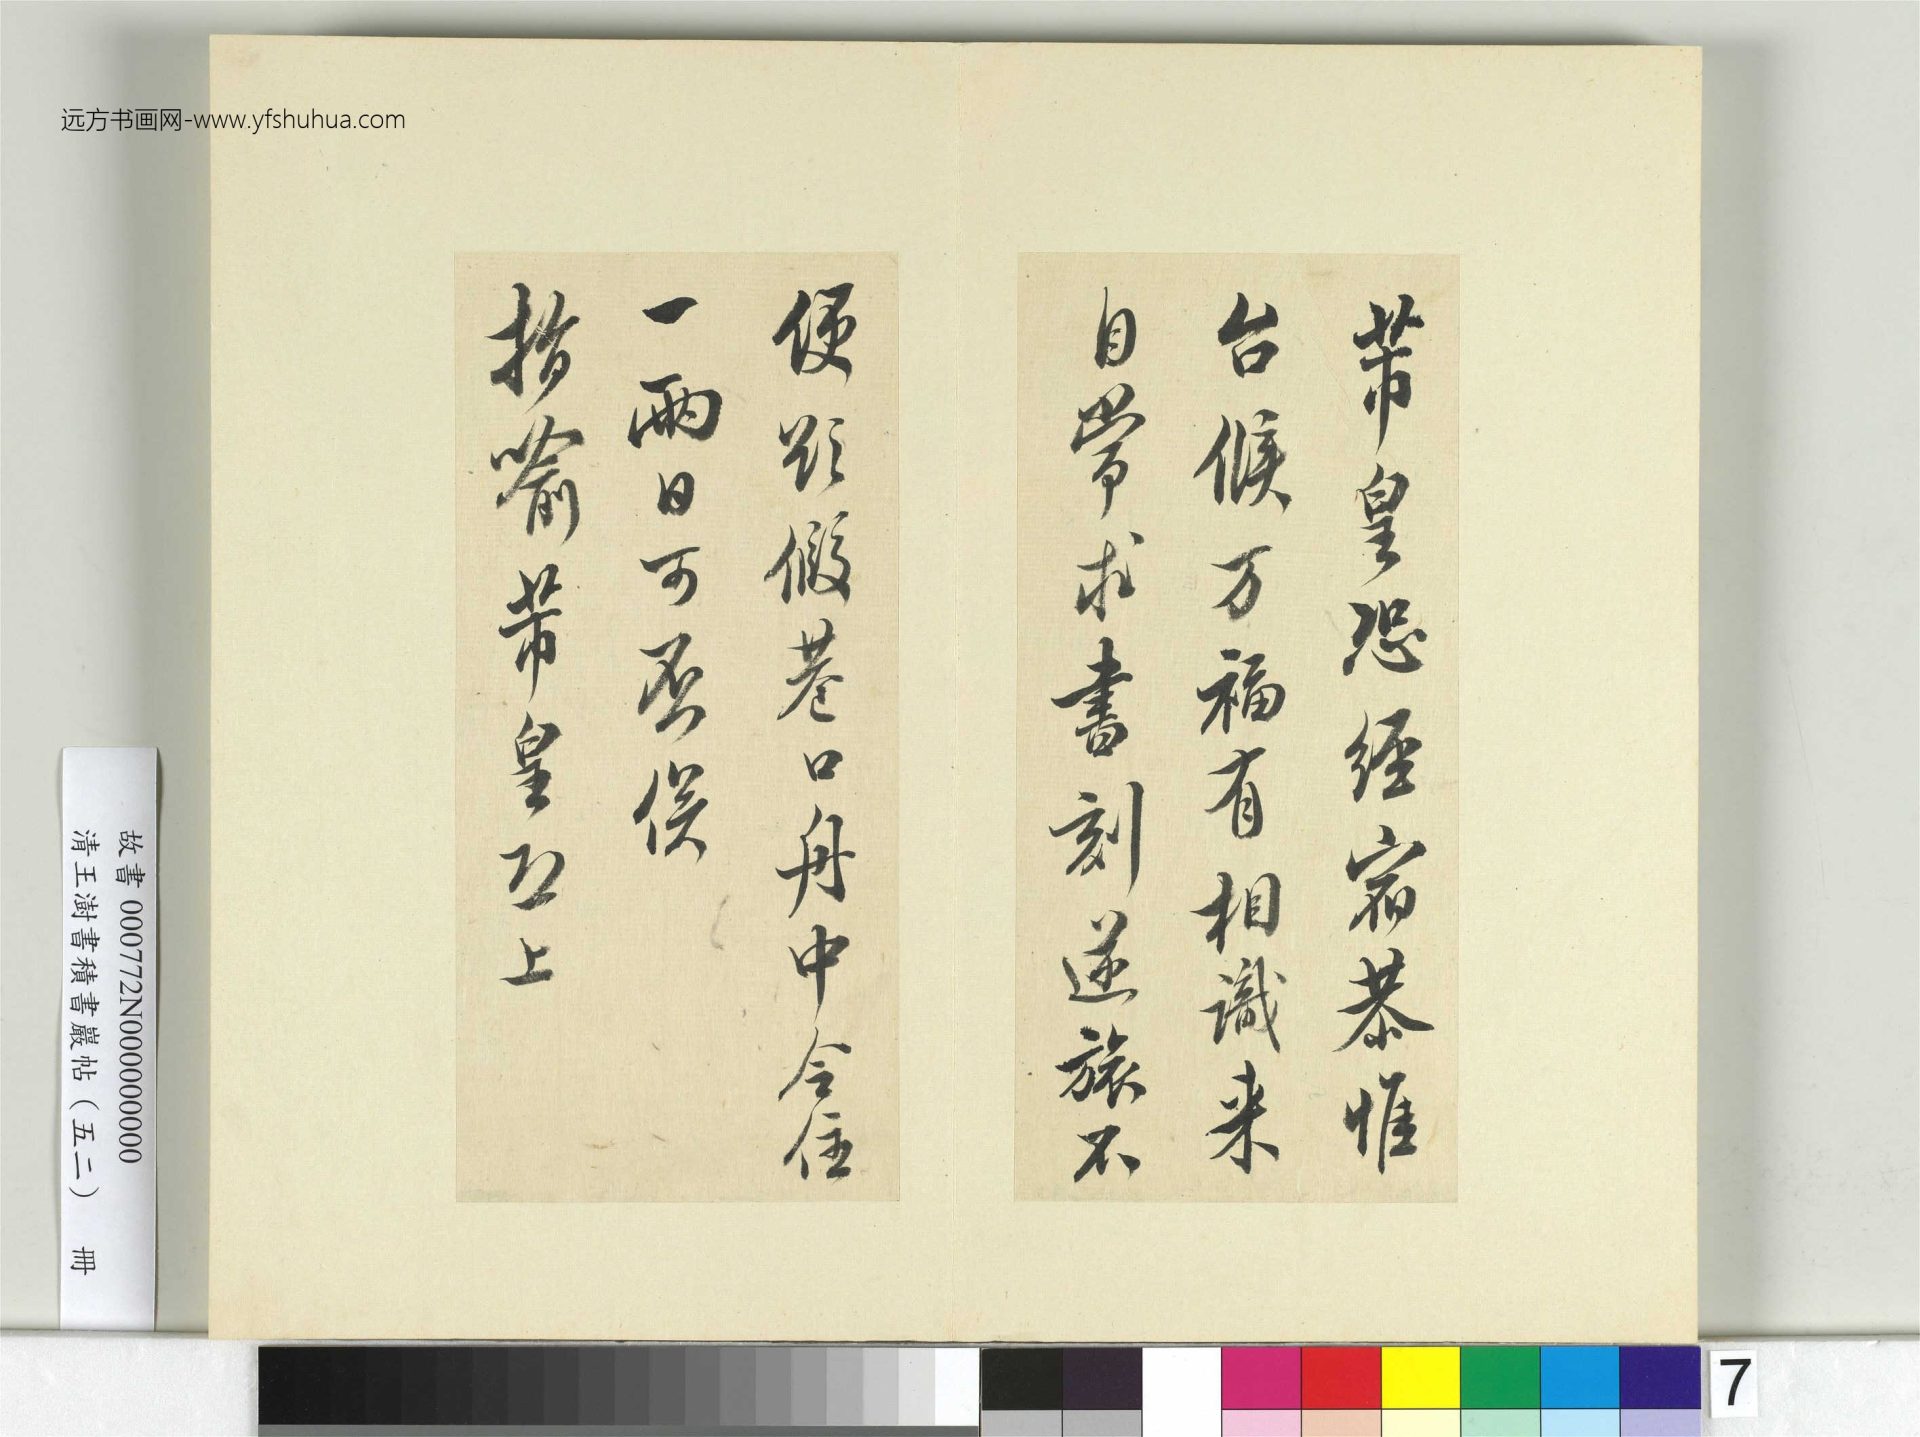 芾皇恐經宿恭惟
台候万福有相識来
自常求書刻逆旅不
便欲假巷口舟中令住
一兩日可否俟
指喻芾皇恐上
远方书画网-www.yfshuhua.com
故書 000772N000000000
清王澍書積書巖帖（五二） 冊
7